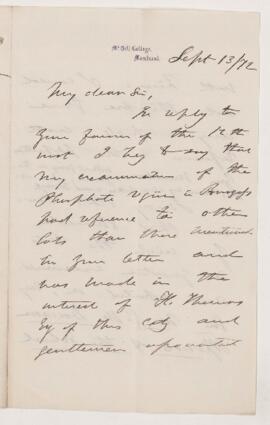 McGill College,
Montreal.
Sept 13/72
My dear Sir,
In reply to
your favour of the 12th
inst I beg to say that
my examination of the
Phosphate region in Burgess
had reference to other
lots than those mentioned
in your letter and
was made in the
interest of H. Thomas
Esq of this city and
gentlemen associated